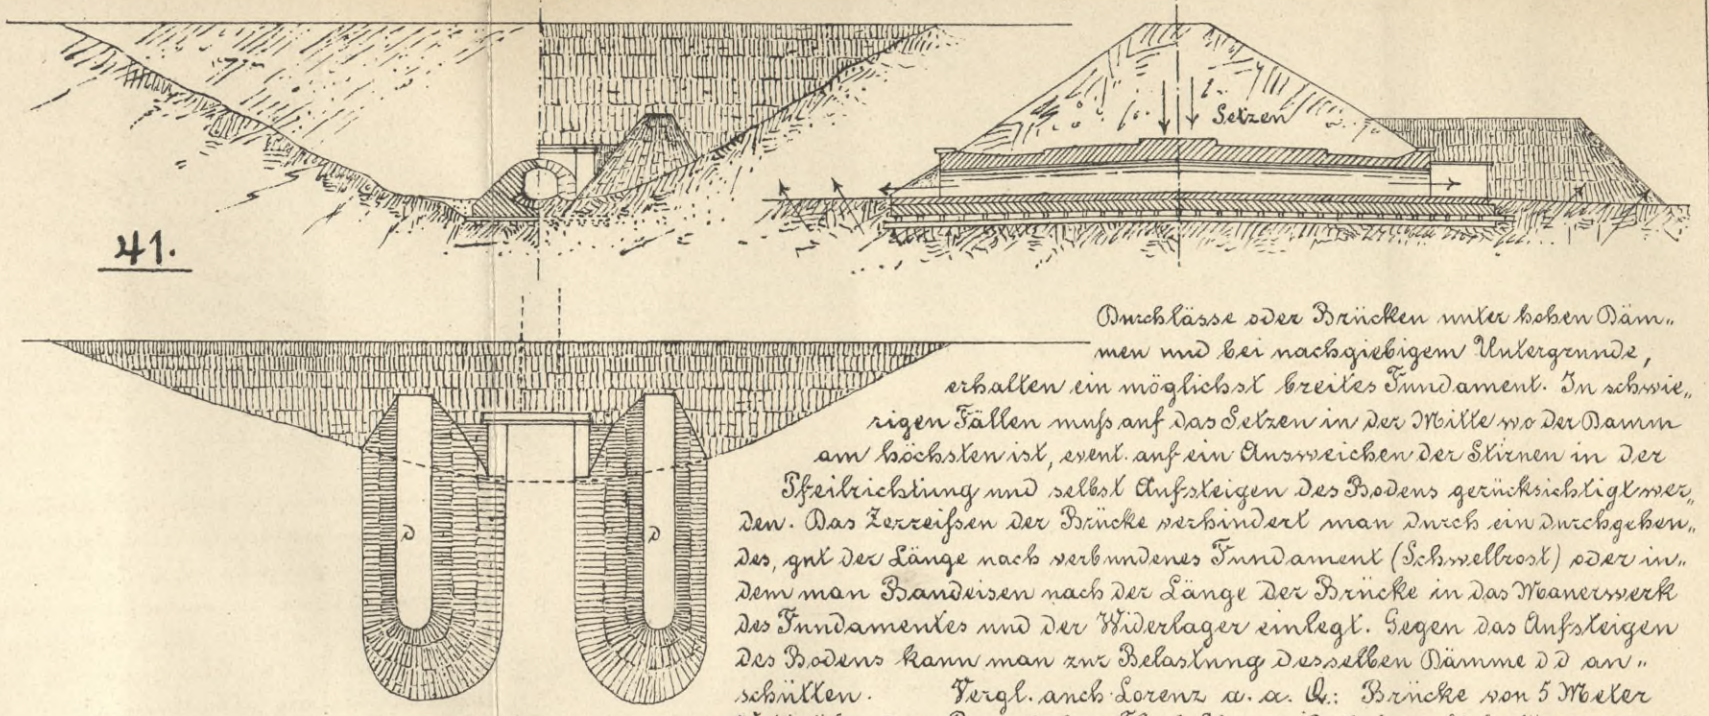 Setzen
41.
D
D
Durchlässe oder Brücken unter hohen Däm„
men und bei nachgiebigem Untergrunde,
erhalten ein möglichst breites Fundament. In schwie„
rigen Fällen muß auf das Setzen in der Mitte wo der Damm
am höchsten ist, event. auf ein Ausweichen der Stirnen in der
Pfeilrichtung und selbst Aufsteigen des Bodens gerücksichtigt wer„
den. Das Zerreißen der Brücke verhindert man durch ein durchgehen„
des, gut der Länge nach verbundenes Fundament (Schwellrost) oder in„
dem man Bandeisen nach der Länge der Brücke in das Mauerwerk
des Fundamentes und der Widerlager einlegt. Gegen das Aufsteigen
des Bodens kann man zur Belastung desselben Dämme DD an„
schütten. Vergl. auch Lorenz a. a. O.: Brücke von 5 Meter